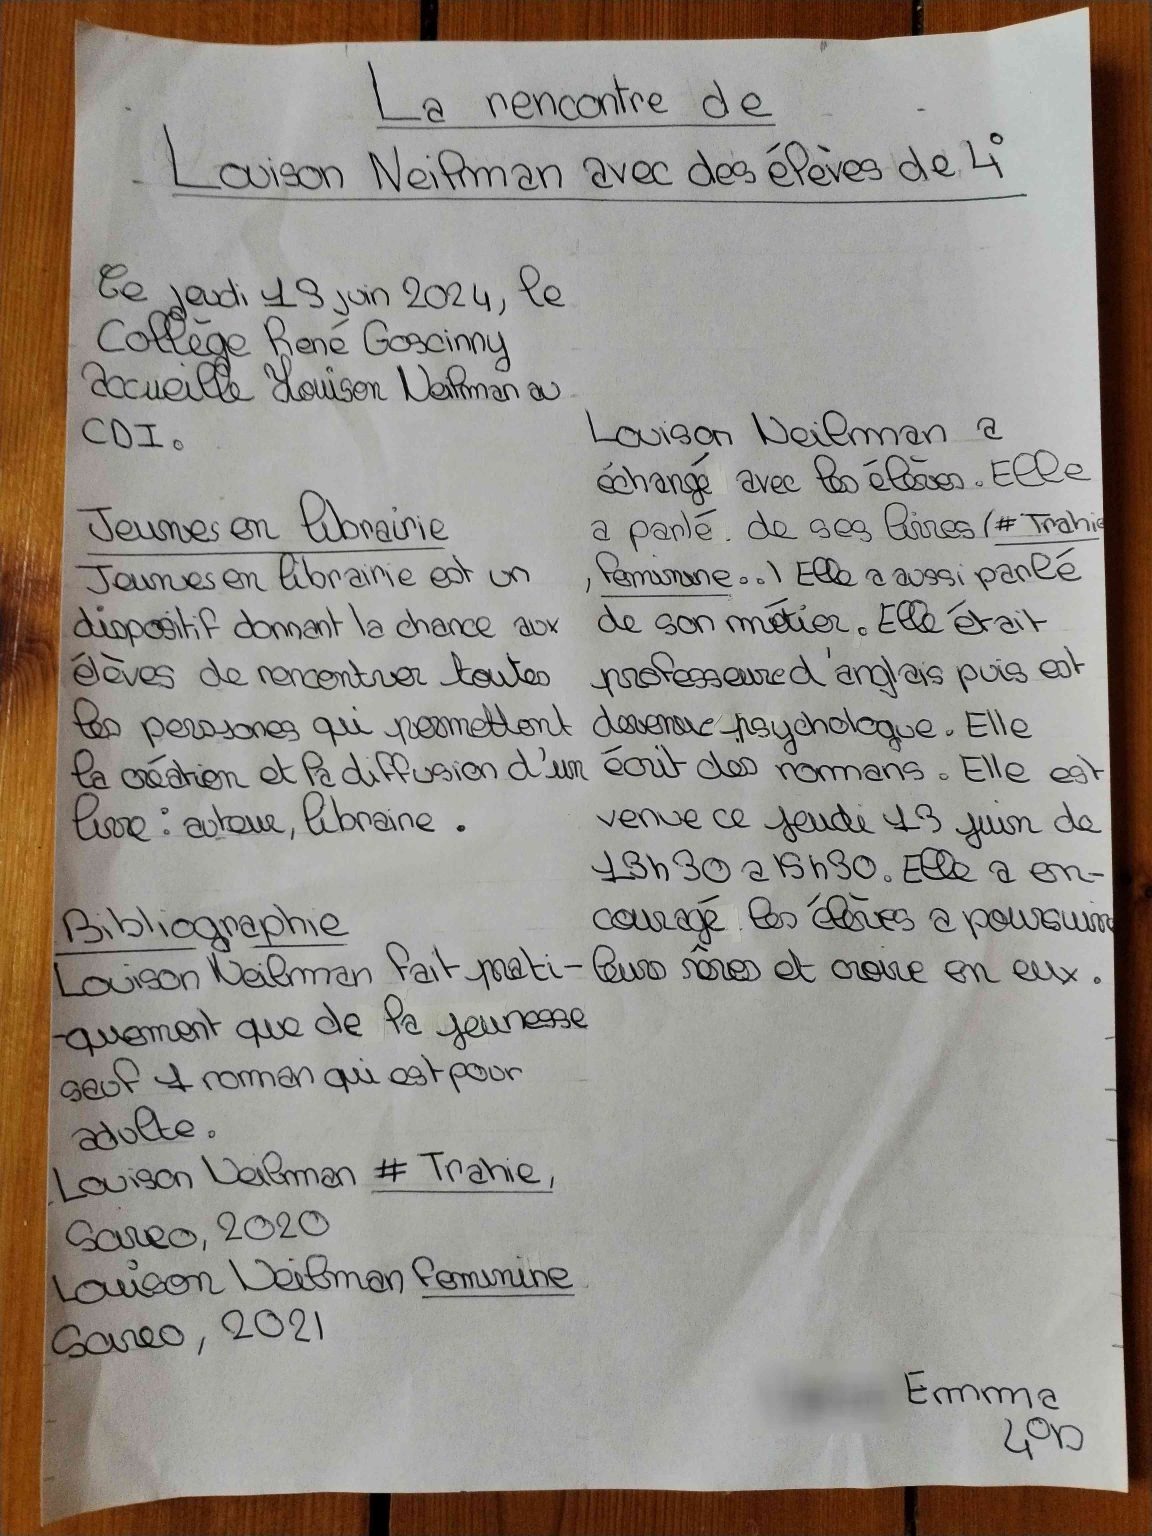 La rencontre de
Louison Neilman avec des élèves de 4°
Ce jeudi 13 juin 2024, le
Collège René Goscinny
accueille Louison Neilman au
CDI.
Jeunes en librairie
Jeunes en librairie est un
dispositif donnant la chance aux
élèves de rencontrer toutes
les personnes qui permettent
la création et la diffusion d'un
livre : auteur, libraire.
Bibliographie
Louison Neilman fait prati-
-quement que de la jeunesse
sauf 1 roman qui est pour
adulte.
Louison Neilman # Trahie,
Scrineo, 2020
Louison Neilman feminine
Scrineo, 2021
Louison Neilman a
échangé avec les élèves. Elle
a parlé de ses livres (# Trahie
, feminine...) Elle a aussi parlé
de son métier. Elle était
professeure d'anglais puis est
devenue psychologue. Elle
écrit des romans. Elle est
venue ce jeudi 13 juin de
13h30 a 15h30. Elle a en-
couragé les élèves a poursuivre
leurs rêves et croire en eux.
Emma
4°D